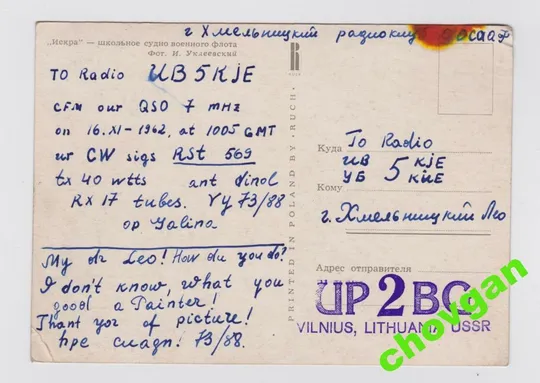 г Хмельницкий радиоклуб ДОСААФ
„Искра" — школьное судно военного флота
Фот. И. Уклеевский
TO Radio UB5KJE
CFM our QSO 7 mHz
on 16.XI-1962, at 1005 GMT
ur CW sigs RSt 569
tx 40 wtts ant dinol
RX 17 tubes. VY 73/88
op Galina
My dr Leo! How du you do?
I don't know, what you
good a Painter!
Thank yor of picture!
73/88.
PRINTED IN POLAND BY „RUCH"
Куда To Radio
UB 5 KJE
УБ
Кому
г. Хмельницкий Лео
Адрес отправителя
UP2BG
VILNIUS, LITHUANIA USSR
chovgan